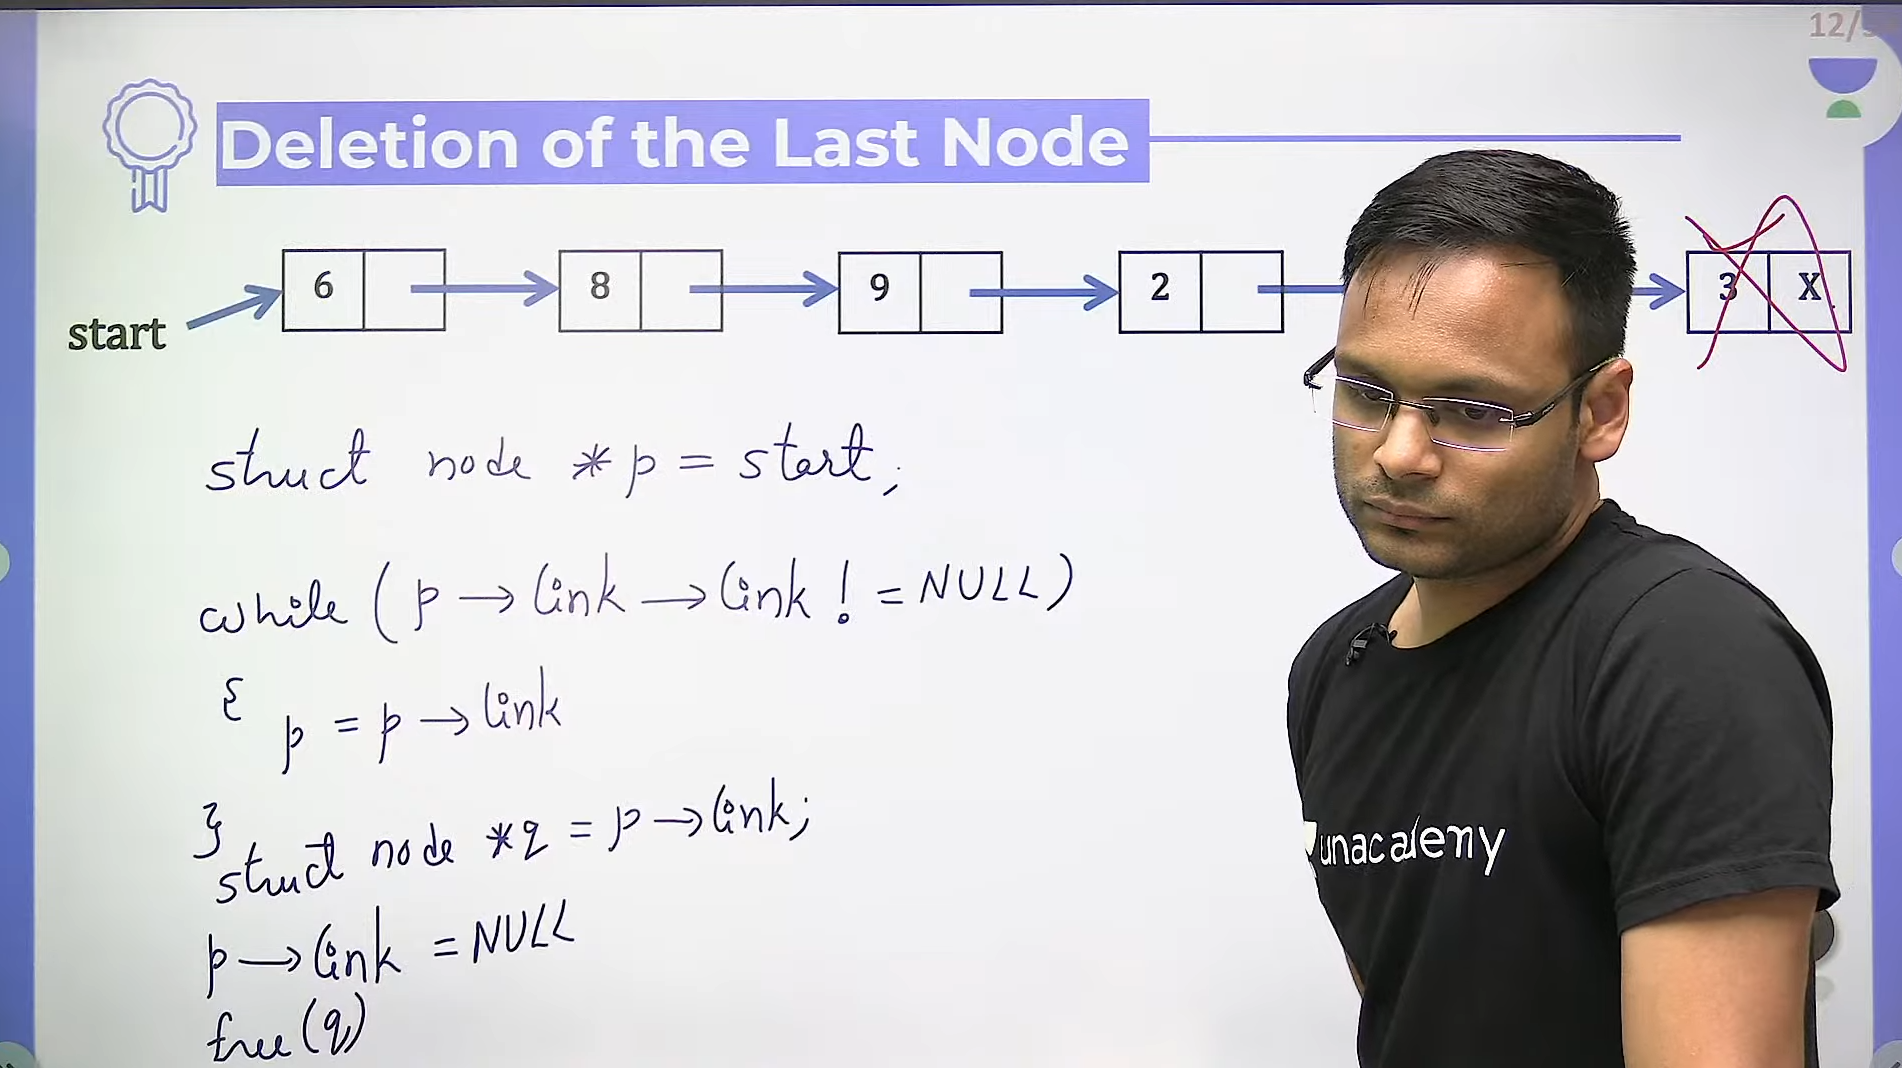 12/
Deletion of the Last Node
start 6 8 9 2 3 X
struct node *p = start;
while (p → link → link != NULL)
{
p = p → link
}
struct node *q = p → link;
p → link = NULL
free(q)
unacademy